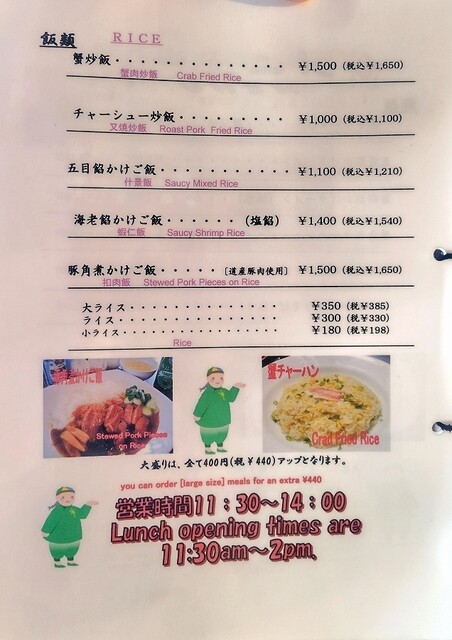 飯類 RICE
蟹炒飯・・・・・・・・・・・・・・ ￥1,500 (税込￥1,650)
蟹肉炒飯 Crab Fried Rice
チャーシュー炒飯・・・・・・・・・ ￥1,000 (税込￥1,100)
叉焼炒飯 Roast Pork Fried Rice
五目餡かけご飯・・・・・・・・・・ ￥1,100 (税込￥1,210)
什景飯 Saucy Mixed Rice
海老餡かけご飯・・・・・・(塩餡) ￥1,400 (税込￥1,540)
蝦仁飯 Saucy Shrimp Rice
豚角煮かけご飯・・・・・[道産豚肉使用] ￥1,500 (税込￥1,650)
扣肉飯 Stewed Pork Pieces on Rice
大ライス・・・・・・・・・・・・・・・・ ￥350 (税￥385)
ライス・・・・・・・・・・・・・・・・・ ￥300 (税￥330)
小ライス・・・・・・・・・・・・・・・・ ￥180 (税￥198)
Rice
Stewed Pork Pieces
on Rice
蟹チャーハン
Crab Fried Rice
大盛りは、全て400円(税￥440)アップとなります。
you can order [large size] meals for an extra ¥440
営業時間11：30～14：00
Lunch opening times are
11:30am～2pm、